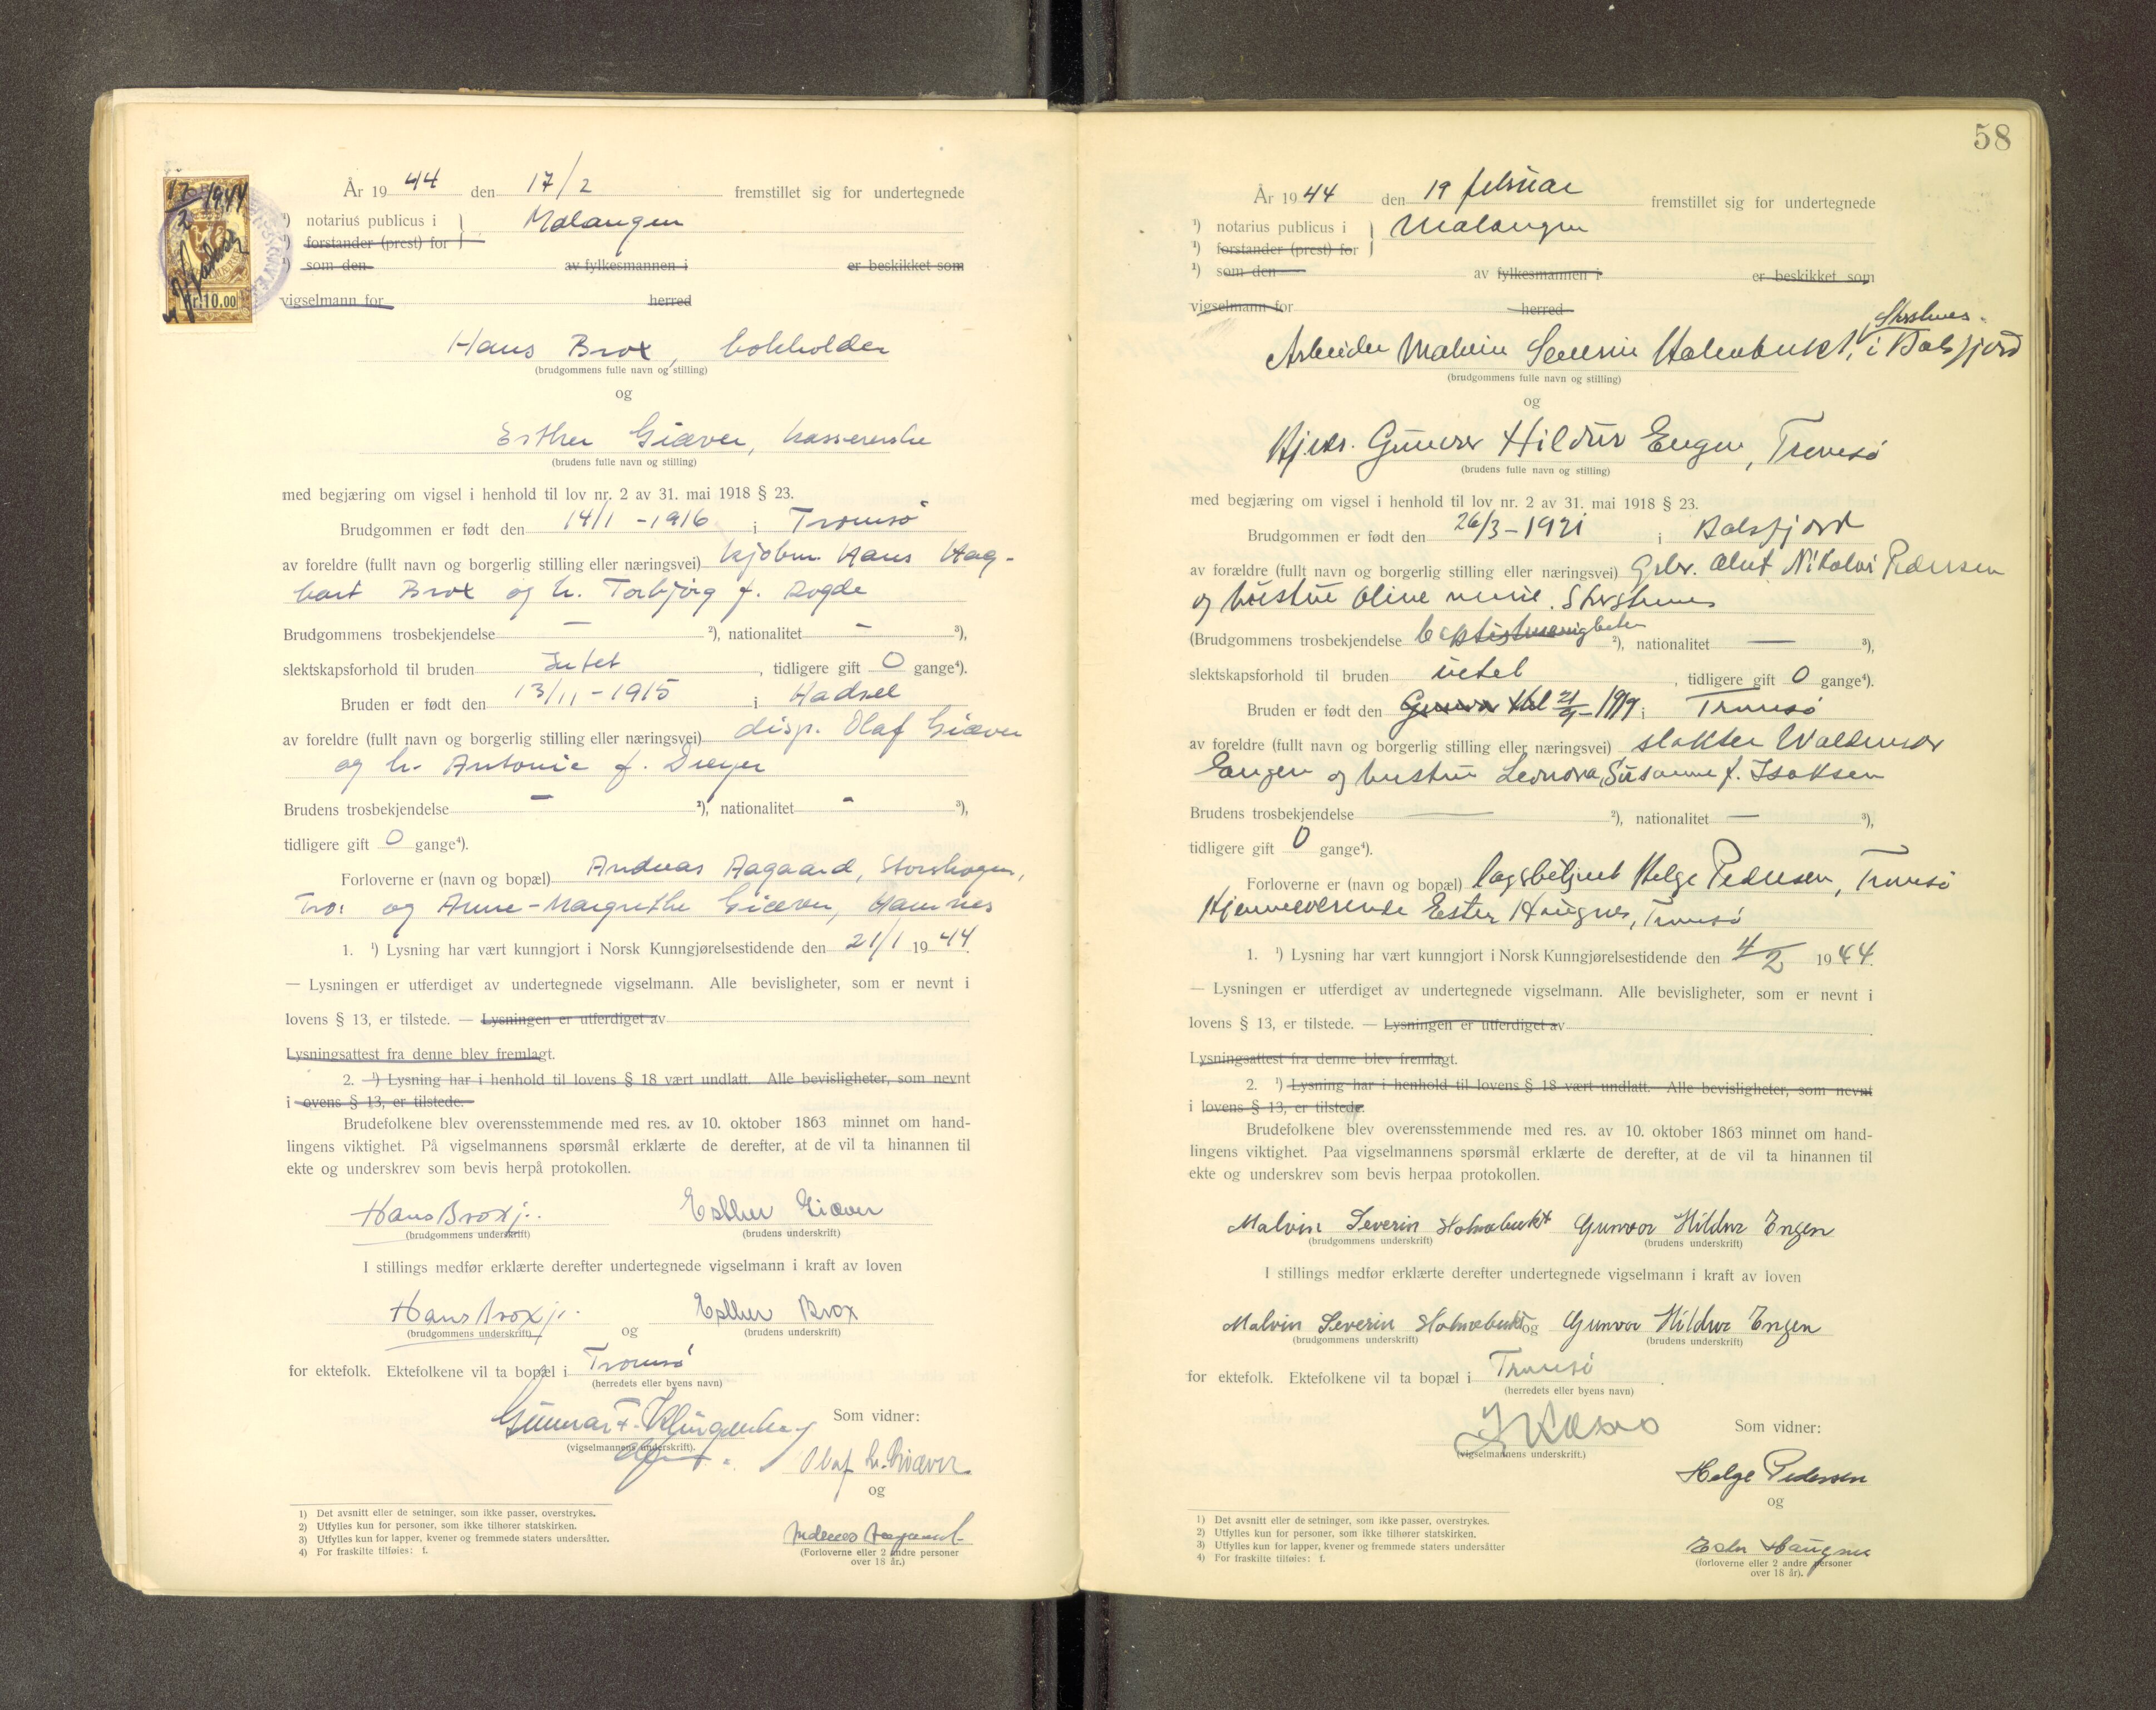 17/2 1944
Kr. 10.00
År 1944 den 17/2 fremstillet sig for undertegnede
¹) notarius publicus i } Malangen
¹) forstander (prest) for
¹) som den av fylkesmannen i er beskikket som
vigselmann for herred
Hans Brox, bokholder
(brudgommens fulle navn og stilling)
og
Esther Giæver, kassererske
(brudens fulle navn og stilling)
med begjæring om vigsel i henhold til lov nr. 2 av 31. mai 1918 § 23.
Brudgommen er født den 14/1 - 1916 i Tromsø
av foreldre (fullt navn og borgerlig stilling eller næringsvei) kjøbm. Hans Hag-
bart Brox og h. Torbjørg f. Rogde
Brudgommens trosbekjendelse — ²), nationalitet — ³),
slektskapsforhold til bruden Intet, tidligere gift 0 gange⁴).
Bruden er født den 13/11 - 1915 i Hadsel
av foreldre (fullt navn og borgerlig stilling eller næringsvei) disp. Olaf Giæver
og h. Antonie f. Dreyer
Brudens trosbekjendelse — ²), nationalitet - ³),
tidligere gift 0 gange⁴).
Forloverne er (navn og bopæl) Andreas Aagaard, Storskogen,
Tro: og Anne-Margrethe Giæver, Hamnes
1. ¹) Lysning har vært kunngjort i Norsk Kunngjørelsestidende den 21/1 1944.
— Lysningen er utferdiget av undertegnede vigselmann. Alle bevisligheter, som er nevnt i
lovens § 13, er tilstede. — Lysningen er utferdiget av
Lysningsattest fra denne blev fremlagt.
2. ¹) Lysning har i henhold til lovens § 18 vært undlatt. Alle bevisligheter, som nevnt
i ovens § 13, er tilstede.
Brudefolkene blev overensstemmende med res. av 10. oktober 1863 minnet om hand-
lingens viktighet. På vigselmannens spørsmål erklærte de derefter, at de vil ta hinannen til
ekte og underskrev som bevis herpå protokollen.
Hans Brox j. Esther Giæver
(brudgommens underskrift) (brudens underskrift)
I stillings medfør erklærte derefter undertegnede vigselmann i kraft av loven
Hans Brox j. og Esther Brox
(brudgommens underskrift) (brudens underskrift)
for ektefolk. Ektefolkene vil ta bopæl i Tromsø
(herredets eller byens navn)
Gunnar F. Klingenberg Som vidner:
(vigselmannens underskrift).
Olaf Giæver
og
Andreas Aagaard
(Forloverne eller 2 andre personer
over 18 år.)
1) Det avsnitt eller de setninger, som ikke passer, overstrykes.
2) Utfylles kun for personer, som ikke tilhører statskirken.
3) Utfylles kun for lapper, kvener og fremmede staters undersåtter.
4) For fraskilte tilføies: f.
58
År 1944 den 19 februar fremstillet sig for undertegnede
¹) notarius publicus i } Malangen
¹) forstander (prest) for
¹) som den av fylkesmannen i er beskikket som
vigselmann for herred
Arbeider Malvin Severin Holmbukt, i Balsfjord
(brudgommens fulle navn og stilling)
og
Gunvor Hildur Engen, Tromsø
(brudens fulle navn og stilling)
med begjæring om vigsel i henhold til lov nr. 2 av 31. mai 1918 § 23.
Brudgommen er født den 26/3 - 1921 i Balsfjord
av forældre (fullt navn og borgerlig stilling eller næringsvei) Gbr. Oluf Nikolai Pedersen
og hustru Oline
(Brudgommens trosbekjendelse ²), nationalitet — ³),
slektskapsforhold til bruden intet, tidligere gift 0 gange⁴).
Bruden er født den 21/9 - 1919 i Tromsø
av foreldre (fullt navn og borgerlig stilling eller næringsvei) slakter Waldemar
Engen og hustru Leonora Susanne f. Isaksen
Brudens trosbekjendelse — ²), nationalitet — ³),
tidligere gift 0 gange⁴).
Forloverne er (navn og bopæl) Helge Pedersen, Tromsø
Hjemmeværende Ester Haugnes, Tromsø
1. ¹) Lysning har vært kunngjort i Norsk Kunngjørelsestidende den 4/2 1944.
— Lysningen er utferdiget av undertegnede vigselmann. Alle bevisligheter, som er nevnt i
lovens § 13, er tilstede. — Lysningen er utferdiget av
Lysningsattest fra denne blev fremlagt.
2. ¹) Lysning har i henhold til lovens § 18 vært undlatt. Alle bevisligheter, som nevnt
i lovens § 13, er tilstede.
Brudefolkene blev overensstemmende med res. av 10. oktober 1863 minnet om hand-
lingens viktighet. Paa vigselmannens spørsmål erklærte de derefter, at de vil ta hinannen til
ekte og underskrev som bevis herpaa protokollen.
Malvin Severin Holmebukt Gunvor Hildur Engen
(brudgommens underskrift) (brudens underskrift)
I stillings medfør erklærte derefter undertegnede vigselmann i kraft av loven
Malvin Severin Holmebukt og Gunvor Hildur Engen
(brudgommens underskrift) (brudens underskrift)
for ektefolk. Ektefolkene vil ta bopæl i Tromsø.
(herredets eller byens navn)
Som vidner:
(vigselmannens underskrift.)
Helge Pedersen
og
Ester Haugnes
(forloverne eller 2 andre personer
over 18 år).
1) Det avsnitt eller de setninger, som ikke passer, overstrykes.
2) Utfylles kun for personer, som ikke tilhører statskirken.
3) Utfylles kun for lapper, kvener og fremmede staters undersåtter
4) For fraskilte tilføies: f.